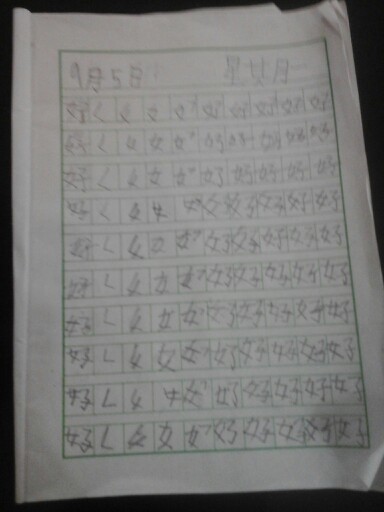 9月5日 星期一
好 く 女 女 好 好 好 好 好
好 く 女 女 好 好 好 好 好
好 く 女 女 好 好 好 好 好
好 く 女 女 好 好 好 好 好
好 く 女 女 好 好 好 好 好
好 く 女 女 好 好 好 好 好
好 く 女 女 好 好 好 好 好
好 く 女 女 好 好 好 好 好
好 く 女 女 好 好 好 好 好
好 く 女 女 好 好 好 好 好